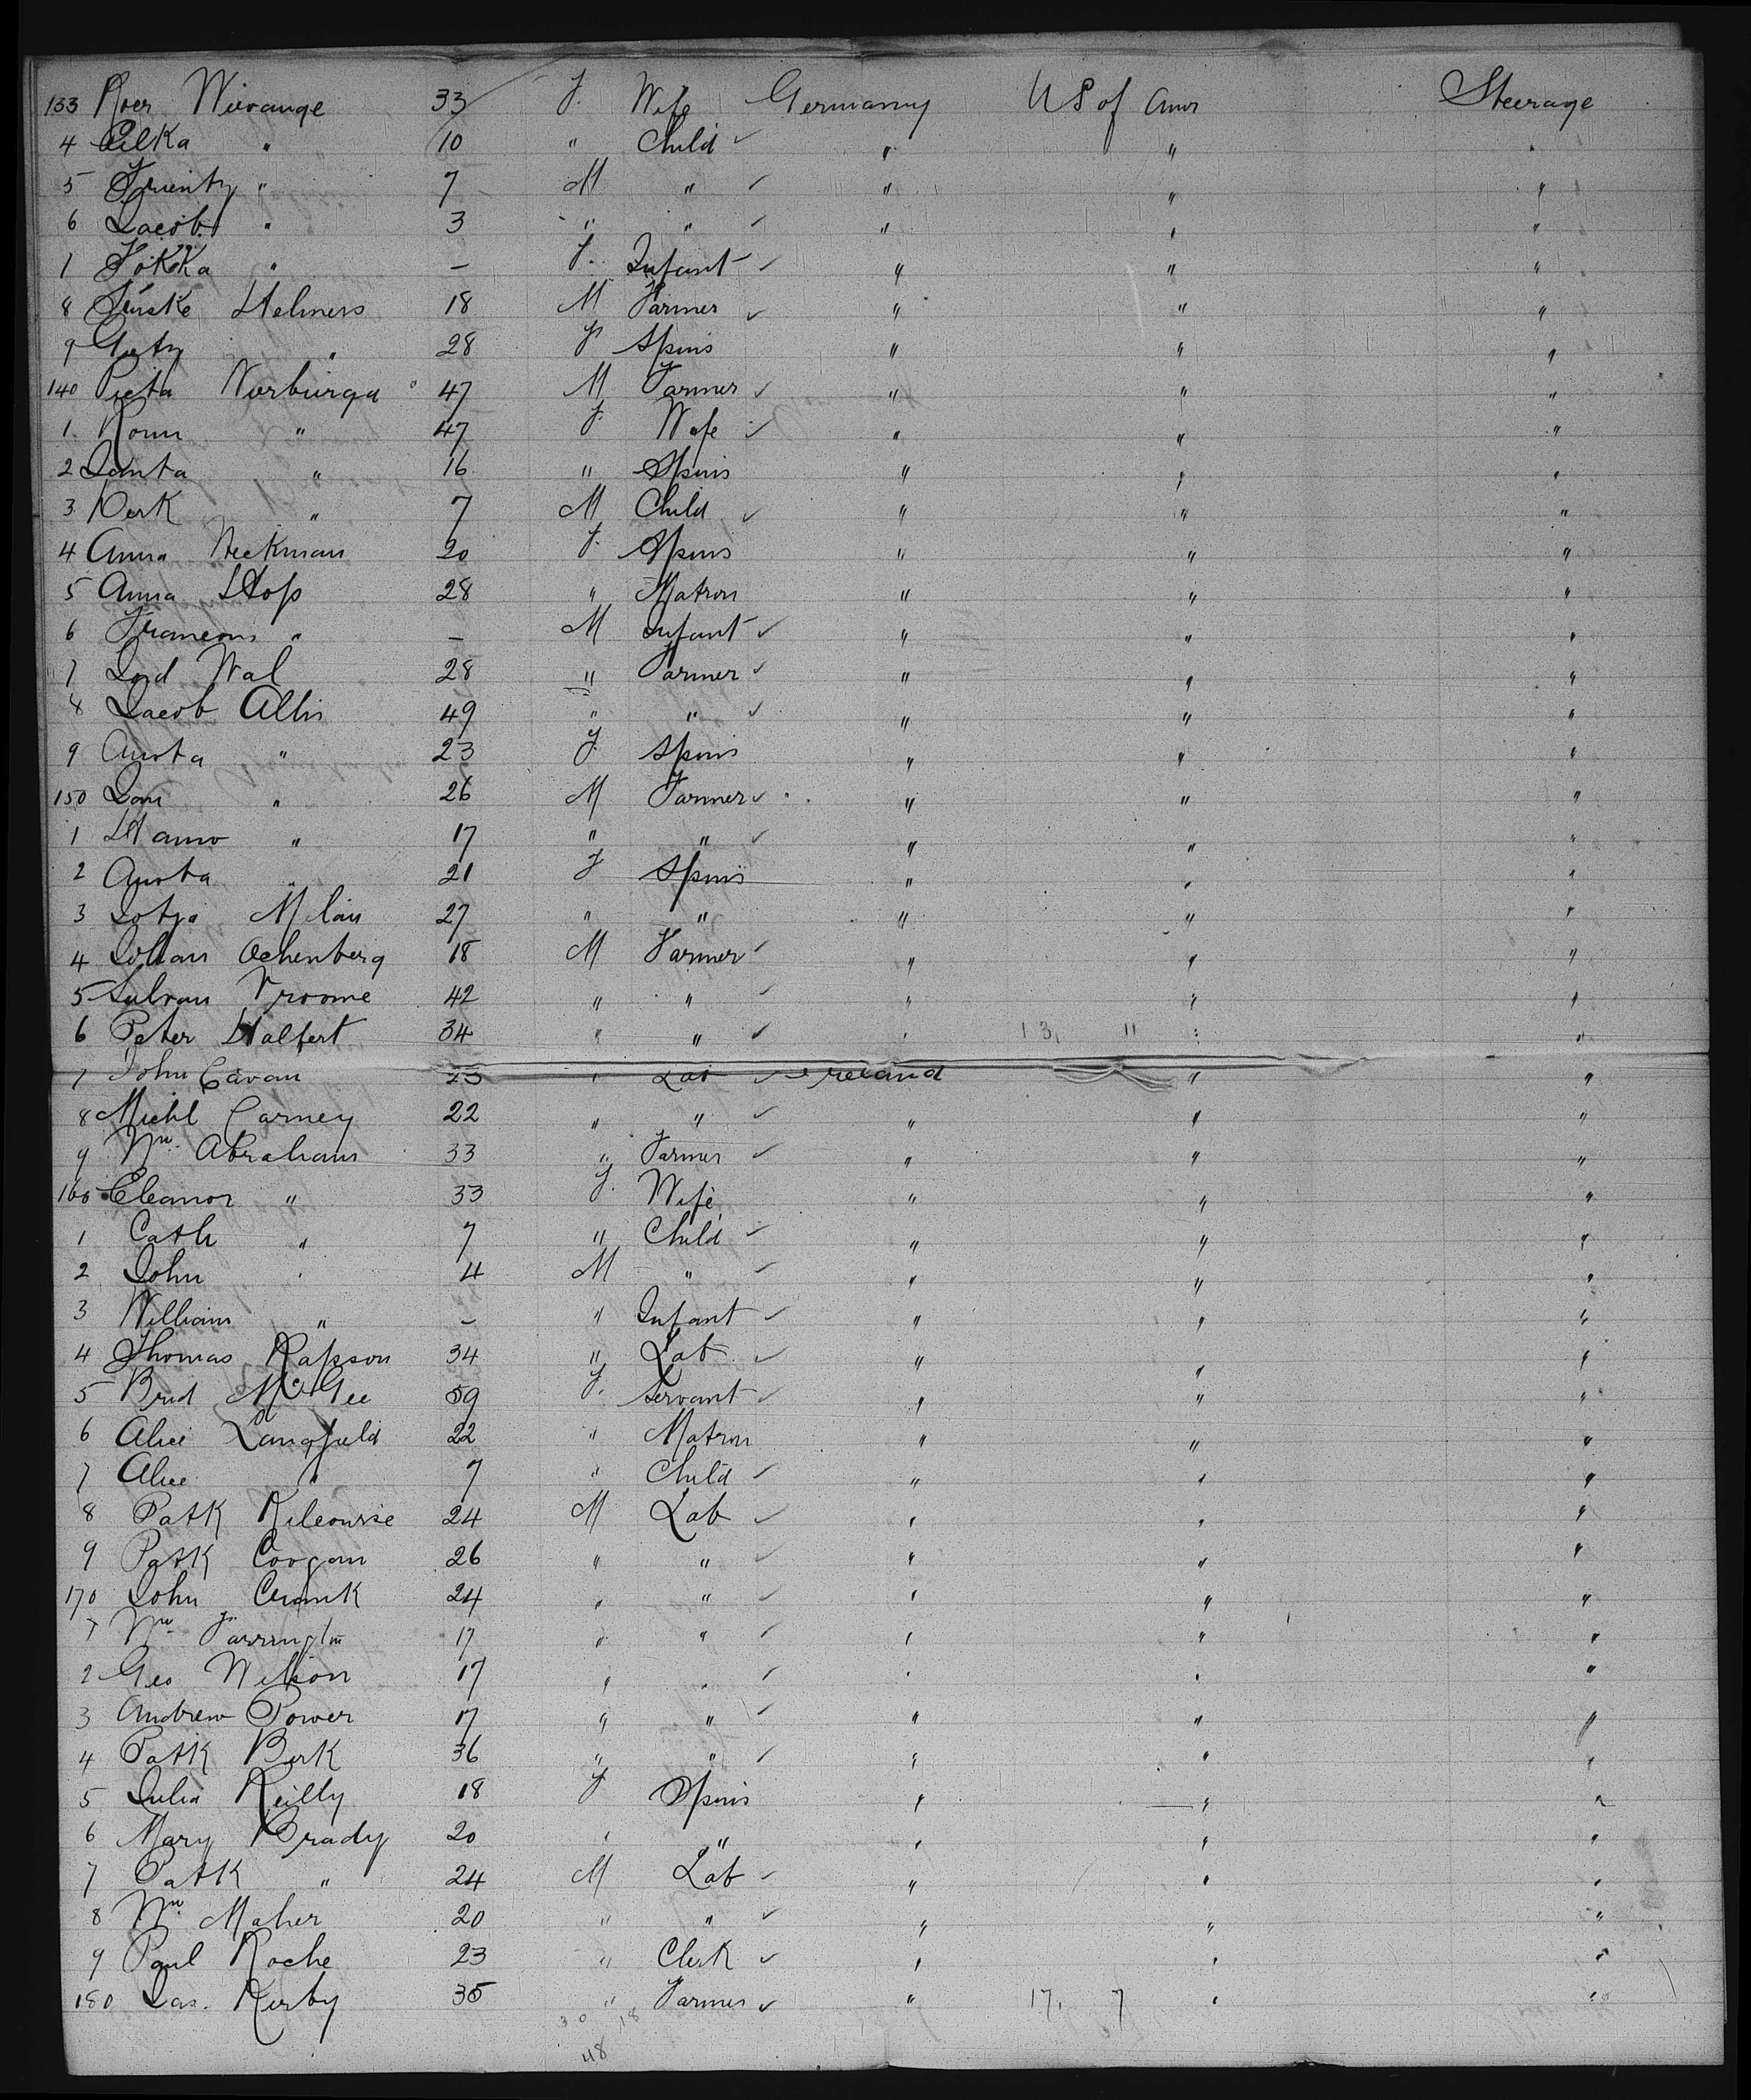 133 Roer Wievange 33 F. Wife Germany US of Amr Steerage
4 Eilka " 10 " Child ✓ " " "
5 Trienty " 7 M " ✓ " " "
6 Jacob " 3 " " ✓ " " "
1 Fokka " — F. Infant ✓ " " "
8 Helmers 18 M Farmer ✓ " " "
9 " 28 F Spins " " "
140 Pieta Norburga 47 M Farmer ✓ " " "
1. " 47 F. Wife ✓ " " "
2 Janta " 16 " Spins " " "
3 Derk " 7 M Child ✓ " " "
4 Anna Heekman 20 F. Spins " " "
5 Anna Hops 28 " Matron " " "
6 " — M Infant ✓ " " "
7 Wal 28 " Farmer ✓ " " "
8 Jacob Albis 49 " " ✓ " " "
9 " 23 F. Spins " " "
150 Jan " 26 M Farmer ✓ " " "
1 Hanno " 17 " " ✓ " " "
2 " 21 F Spins " " "
3 Milan 27 " " " " "
4 Johan Ochenberg 18 M Farmer ✓ " " "
5 Vroome 42 " " ✓ " " "
6 Peter Halfert 34 " " ✓ " 13, 11 " "
7 John Cavan 23 " Lab ✓ Ireland " "
8 Michl Carney 22 " " ✓ " " "
9 Wm. Abraham 33 " Farmer ✓ " " "
160 Eleanor " 33 F. Wife " " "
1 Cath " 7 " Child ✓ " " "
2 John " 4 M " ✓ " " "
3 William " — " Infant ✓ " " "
4 Thomas Rapson 34 " Lab ✓ " " "
5 Brid McGee 59 F. Servant ✓ " " "
6 Alice Langfield 22 " Matron " " "
7 Alice " 7 " Child ✓ " " "
8 Patk Kilcourse 24 M Lab ✓ " " "
9 Patk Coogan 26 " " ✓ " " "
170 John 24 " " ✓ " " "
1 Wm. Farrington 17 " " ✓ " " "
2 Geo Wilson 17 " " ✓ " " "
3 Andrew Power 17 " " ✓ " " "
4 Patk Berk 36 " " ✓ " " "
5 Julia Reilly 18 F Spins " " "
6 Mary Brady 20 " " " " "
7 Patk " 24 M Lab ✓ " " "
8 Wm. Maher 20 " " ✓ " " "
9 Paul Roche 23 " Clerk ✓ " " "
180 Jas. Kerby 35 " Farmer ✓ " 17, 7 " "
30 18
48